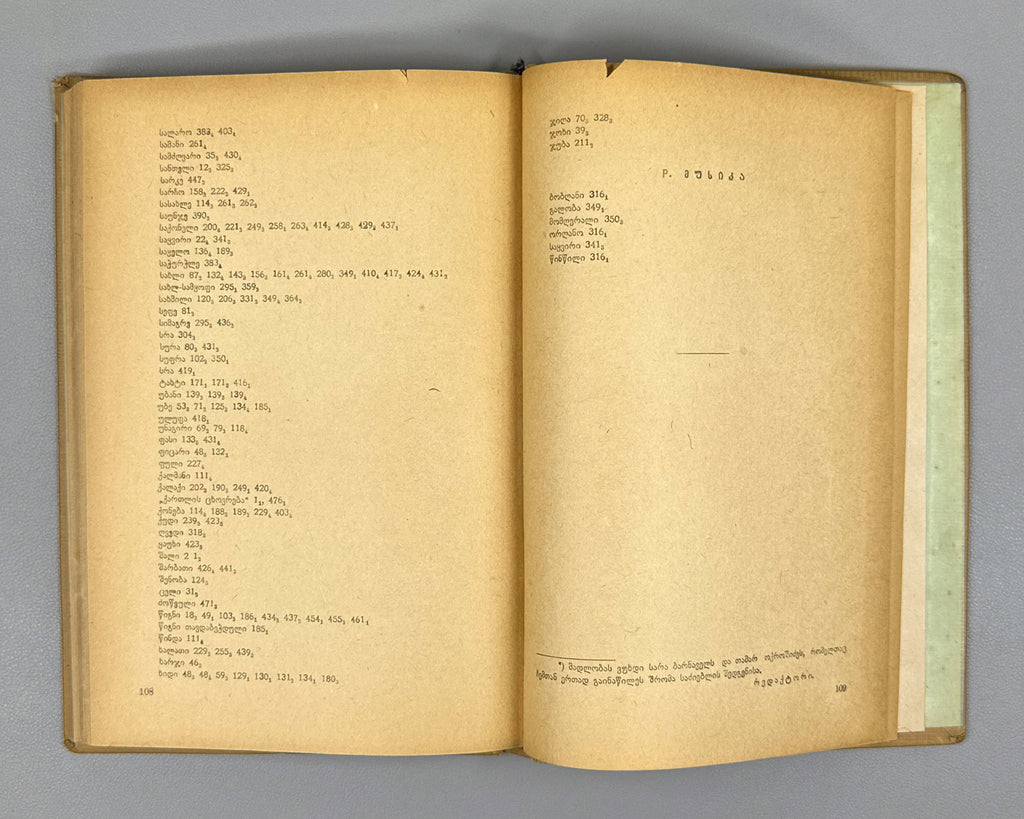 სალარო 383₄ 403₄
სამანი 261₄
სამძღვარი 35₃ 430₄
სანთელი 12₃ 325₃
სარკე 447₃
სარჩო 158₃ 222₃ 429₁
სასახლე 114₃ 261₃ 262₃
საუნჯე 390₃
საქონელი 200₄ 221₃ 249₃ 258₃ 263₄ 414₃ 428₃ 429₄ 437₁
საყვირი 22₄ 341₃
საყელო 136₄ 189₃
საჭურჭლე 383₄
სახლი 87₃ 132₄ 143₃ 156₃ 161₄ 261₄ 280₃ 349₁ 410₄ 417₃ 424₄ 431₃
სახლ-სამყოფი 295₁ 359₃
სახმილი 120₃ 206₃ 331₃ 349₄ 364₃
სეფე 81₃
სიმაგრე 295₃ 436₃
სრა 304₃
სურა 80₃ 431₃
სუფრა 102₃ 350₁
სრა 419₁
ტახტი 171₃ 171₃ 416₁
უბანი 139₃ 139₃ 139₄
უბე 53₃ 71₃ 125₃ 134₄ 185₁
ულუფა 418₁
უნაგირი 69₃ 79₃ 118₄
ფასი 133₃ 431₄
ფიცარი 48₃ 132₁
ფული 227₄
ქალმანი 111₄
ქალაქი 202₃ 190₃ 249₁ 420₄
„ქართლის ცხოვრება“ 1₁, 476₁
ქონება 114₃ 188₃ 189₃ 229₄ 403₄
ქუდი 239₃ 423₃
ღვედი 318₃
ყაუხი 423₃
შალი 2 1₃
შარბათი 426₄ 441₃
შენობა 124₃
ცელი 31₃
ძოწეული 471₃
წიგნი 18₃ 49₁ 103₃ 186₁ 434₃ 437₄ 454₃ 455₃ 461₄
წიგნი თავდაბეჭდული 185₁
წინდა 111₄
ხალათი 229₃ 255₃ 439₃
ხარჯი 46₃
ხიდი 48₃ 48₄ 59₃ 129₁ 130₁ 131₃ 134₁ 180₃
108
ჯიღა 70₃ 328₃
ჯოხი 39₃
ჯუბა 211₃
P. მუსიკა
ბობღანი 316₁
გალობა 349₁
მომღერალი 350₃
ორღანო 316₁
საყვირი 341₃
წინწილი 316₁
*) მადლობას ვუხდი სარა ბარნაველს და თამარ ოქროშიძეს, რომელთაც
ჩემთან ერთად გაინაწილეს შრომა საძიებლის შედგენისა.
რედაქტორი.
109